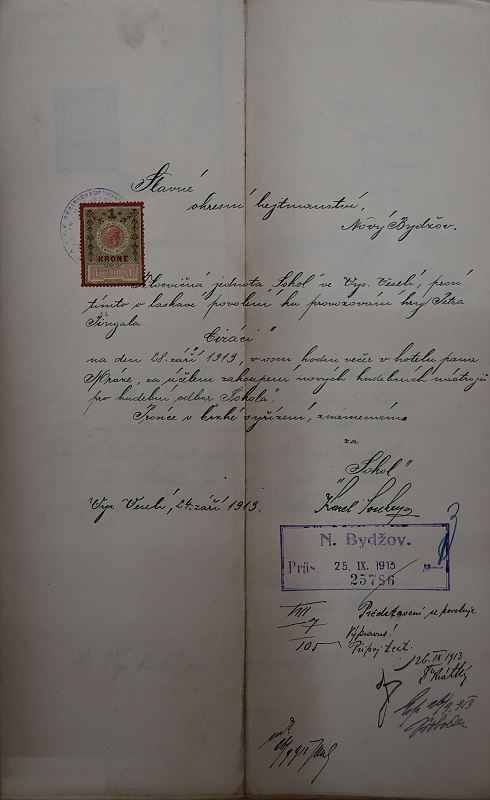 Slavné
okresní hejtmanství,
Nový Bydžov.
1
KRONE
1 1910 1
Tělocvičná jednota Sokol" ve Vys. Veselí, prosí
tímto o laskavé povolení ku provozování hry Petra
Fingala
Cizáci"
na den 28. září 1913, v osm hodin večer v hotelu pana
Mráze, za účelem zakoupení nových hudebních nástrojů
pro hudební odbor Sokola".
Prosíce o brzké vyřízení, znamenáme
za
„Sokol"
Vys. Veselí, 24. září 1913.
Karel
N. Bydžov.
Präs 25. IX. 1913
25786
VIII
7
105
Představení se povoluje
Vypravuj!
Připoj text.
26. IX 1913
Krátký